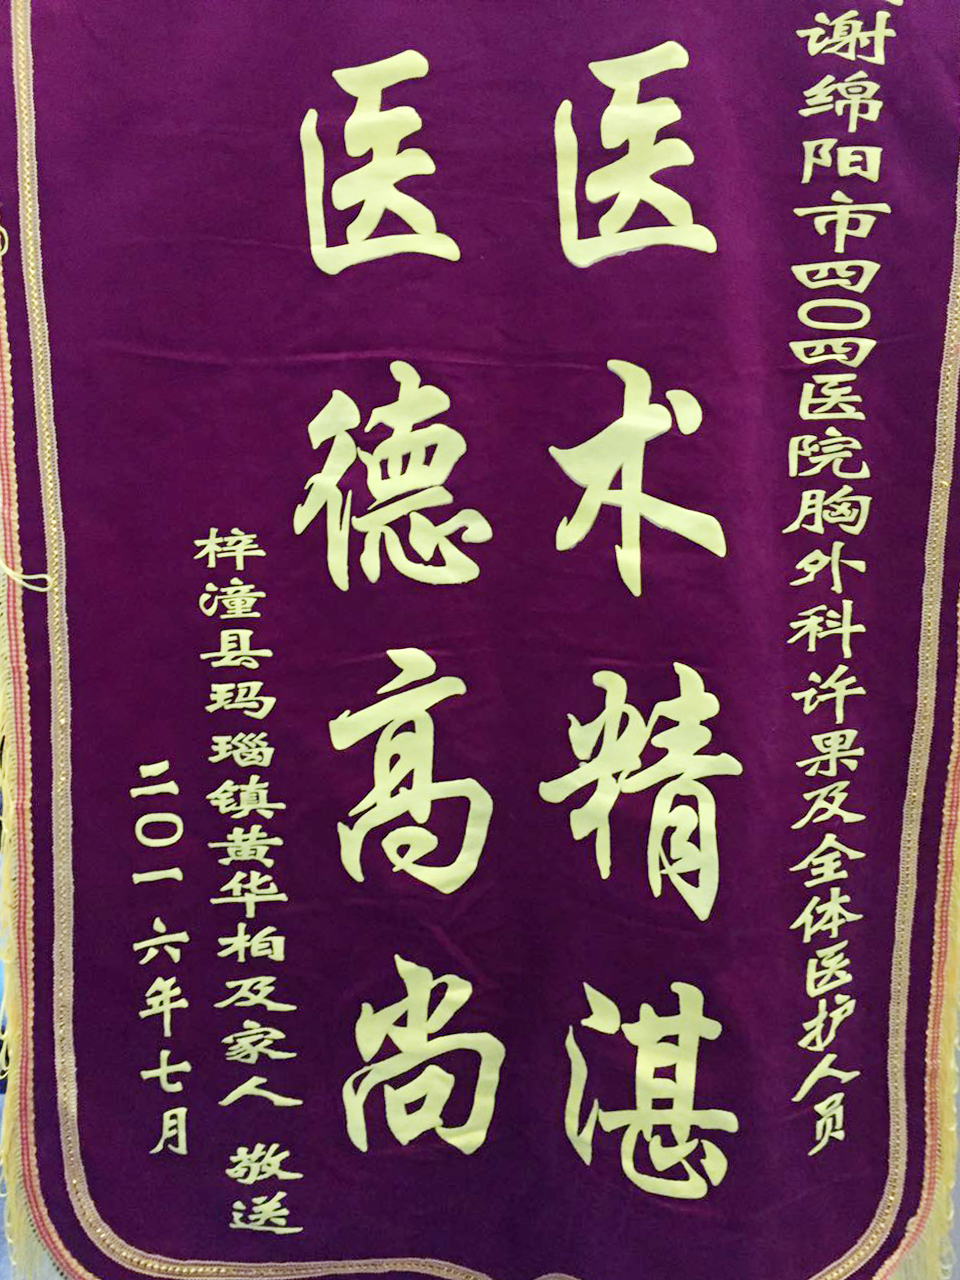 谢绵阳市四〇四医院胸外科许果及全体医护人员
医术精湛
医德高尚
梓潼县玛瑙镇黄华柏及家人 敬送
二〇一六年七月